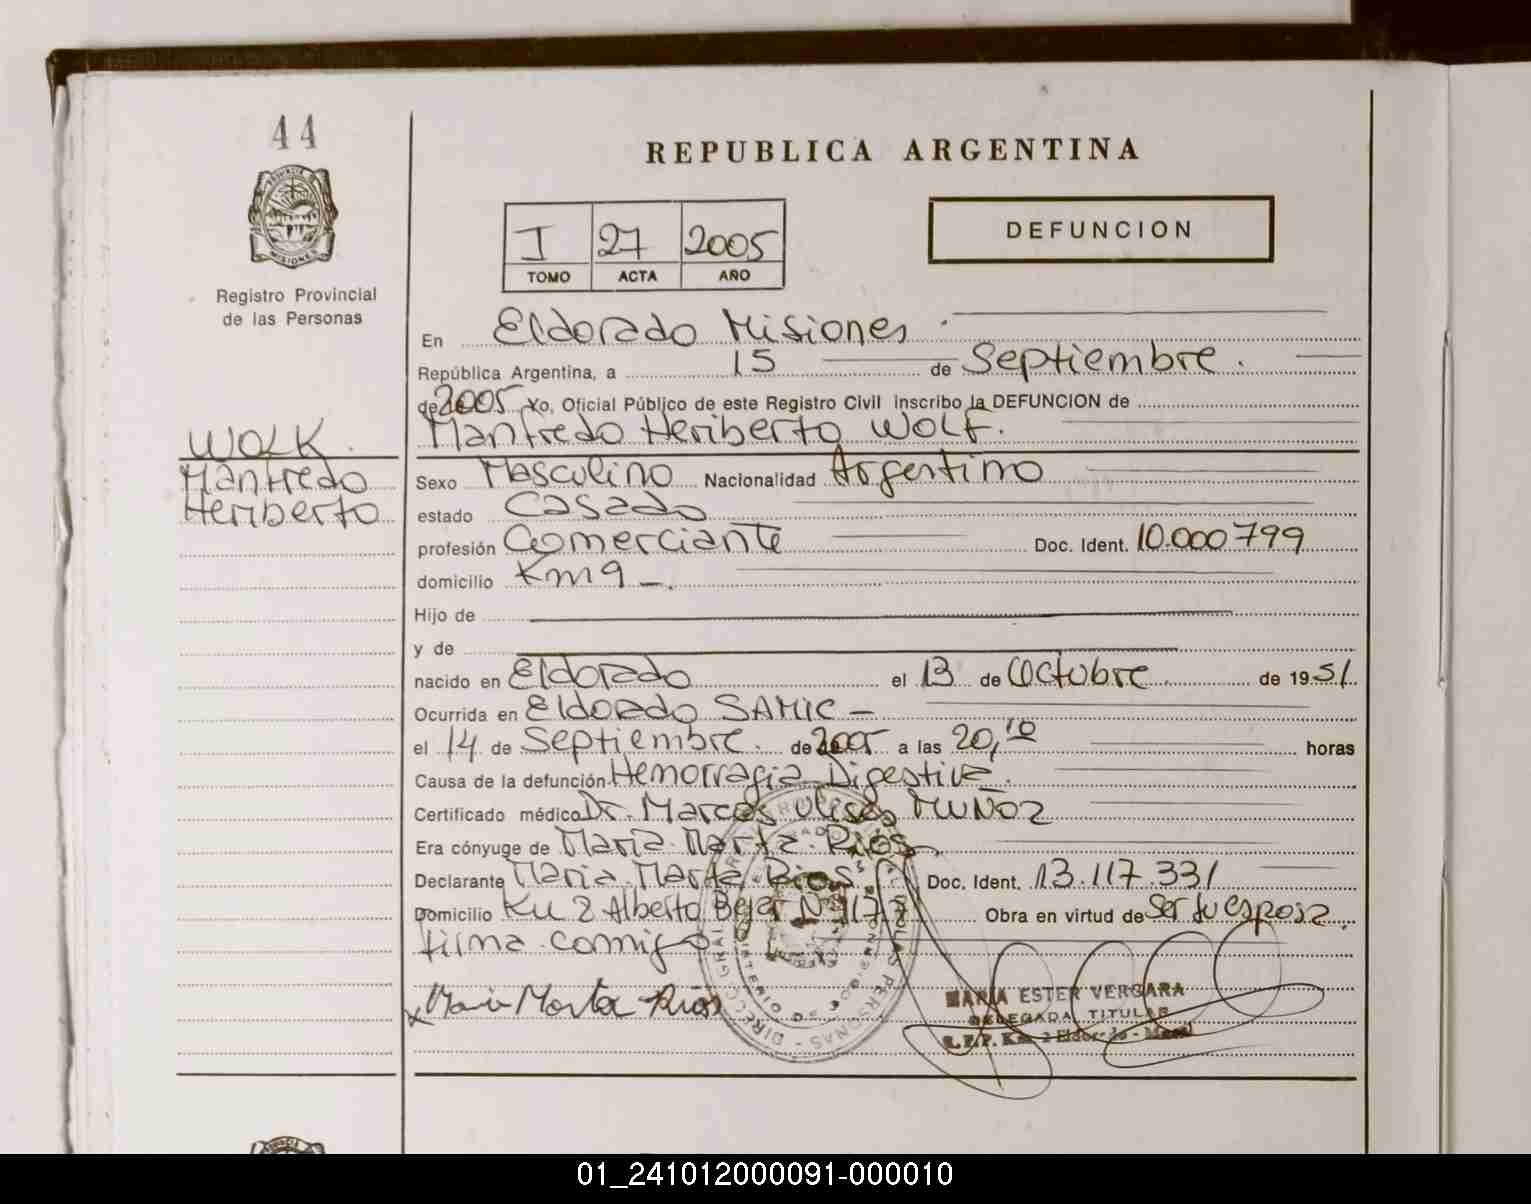 44
REPUBLICA ARGENTINA
I 27 2005
TOMO ACTA AÑO
DEFUNCION
MISIONES
Registro Provincial
de las Personas
WOLK.
Manfredo
Heriberto
En Eldorado Misiones.
República Argentina, a 15 de Septiembre.
de 2005 Yo, Oficial Público de este Registro Civil inscribo la DEFUNCION de
Manfredo Heriberto WOLF.
Sexo Masculino Nacionalidad Argentino
estado Casado
profesión Comerciante Doc. Ident. 10.000799
domicilio Km 9 -.
Hijo de
y de
nacido en Eldorado el 13 de Octubre de 1951.
Ocurrida en Eldorado SAMIC -
el 14 de Septiembre. de 2005 a las 20,10 horas
Causa de la defunción Hemorragia Digestiva.
Certificado médico Dr. Marcos Ulises MUÑOZ
Era cónyuge de Maria Marta Rios
Declarante Maria Marta Rios Doc. Ident. 13.117.331
Domicilio Km 2 Alberto Nº Obra en virtud de Ser su esposa.
firma conmigo
x Maria Marta Rios
MARIA ESTER VERGARA
DELEGADA TITULAR
R.P.P. Km. 2 Eldorado - Mnes
01_241012000091-000010